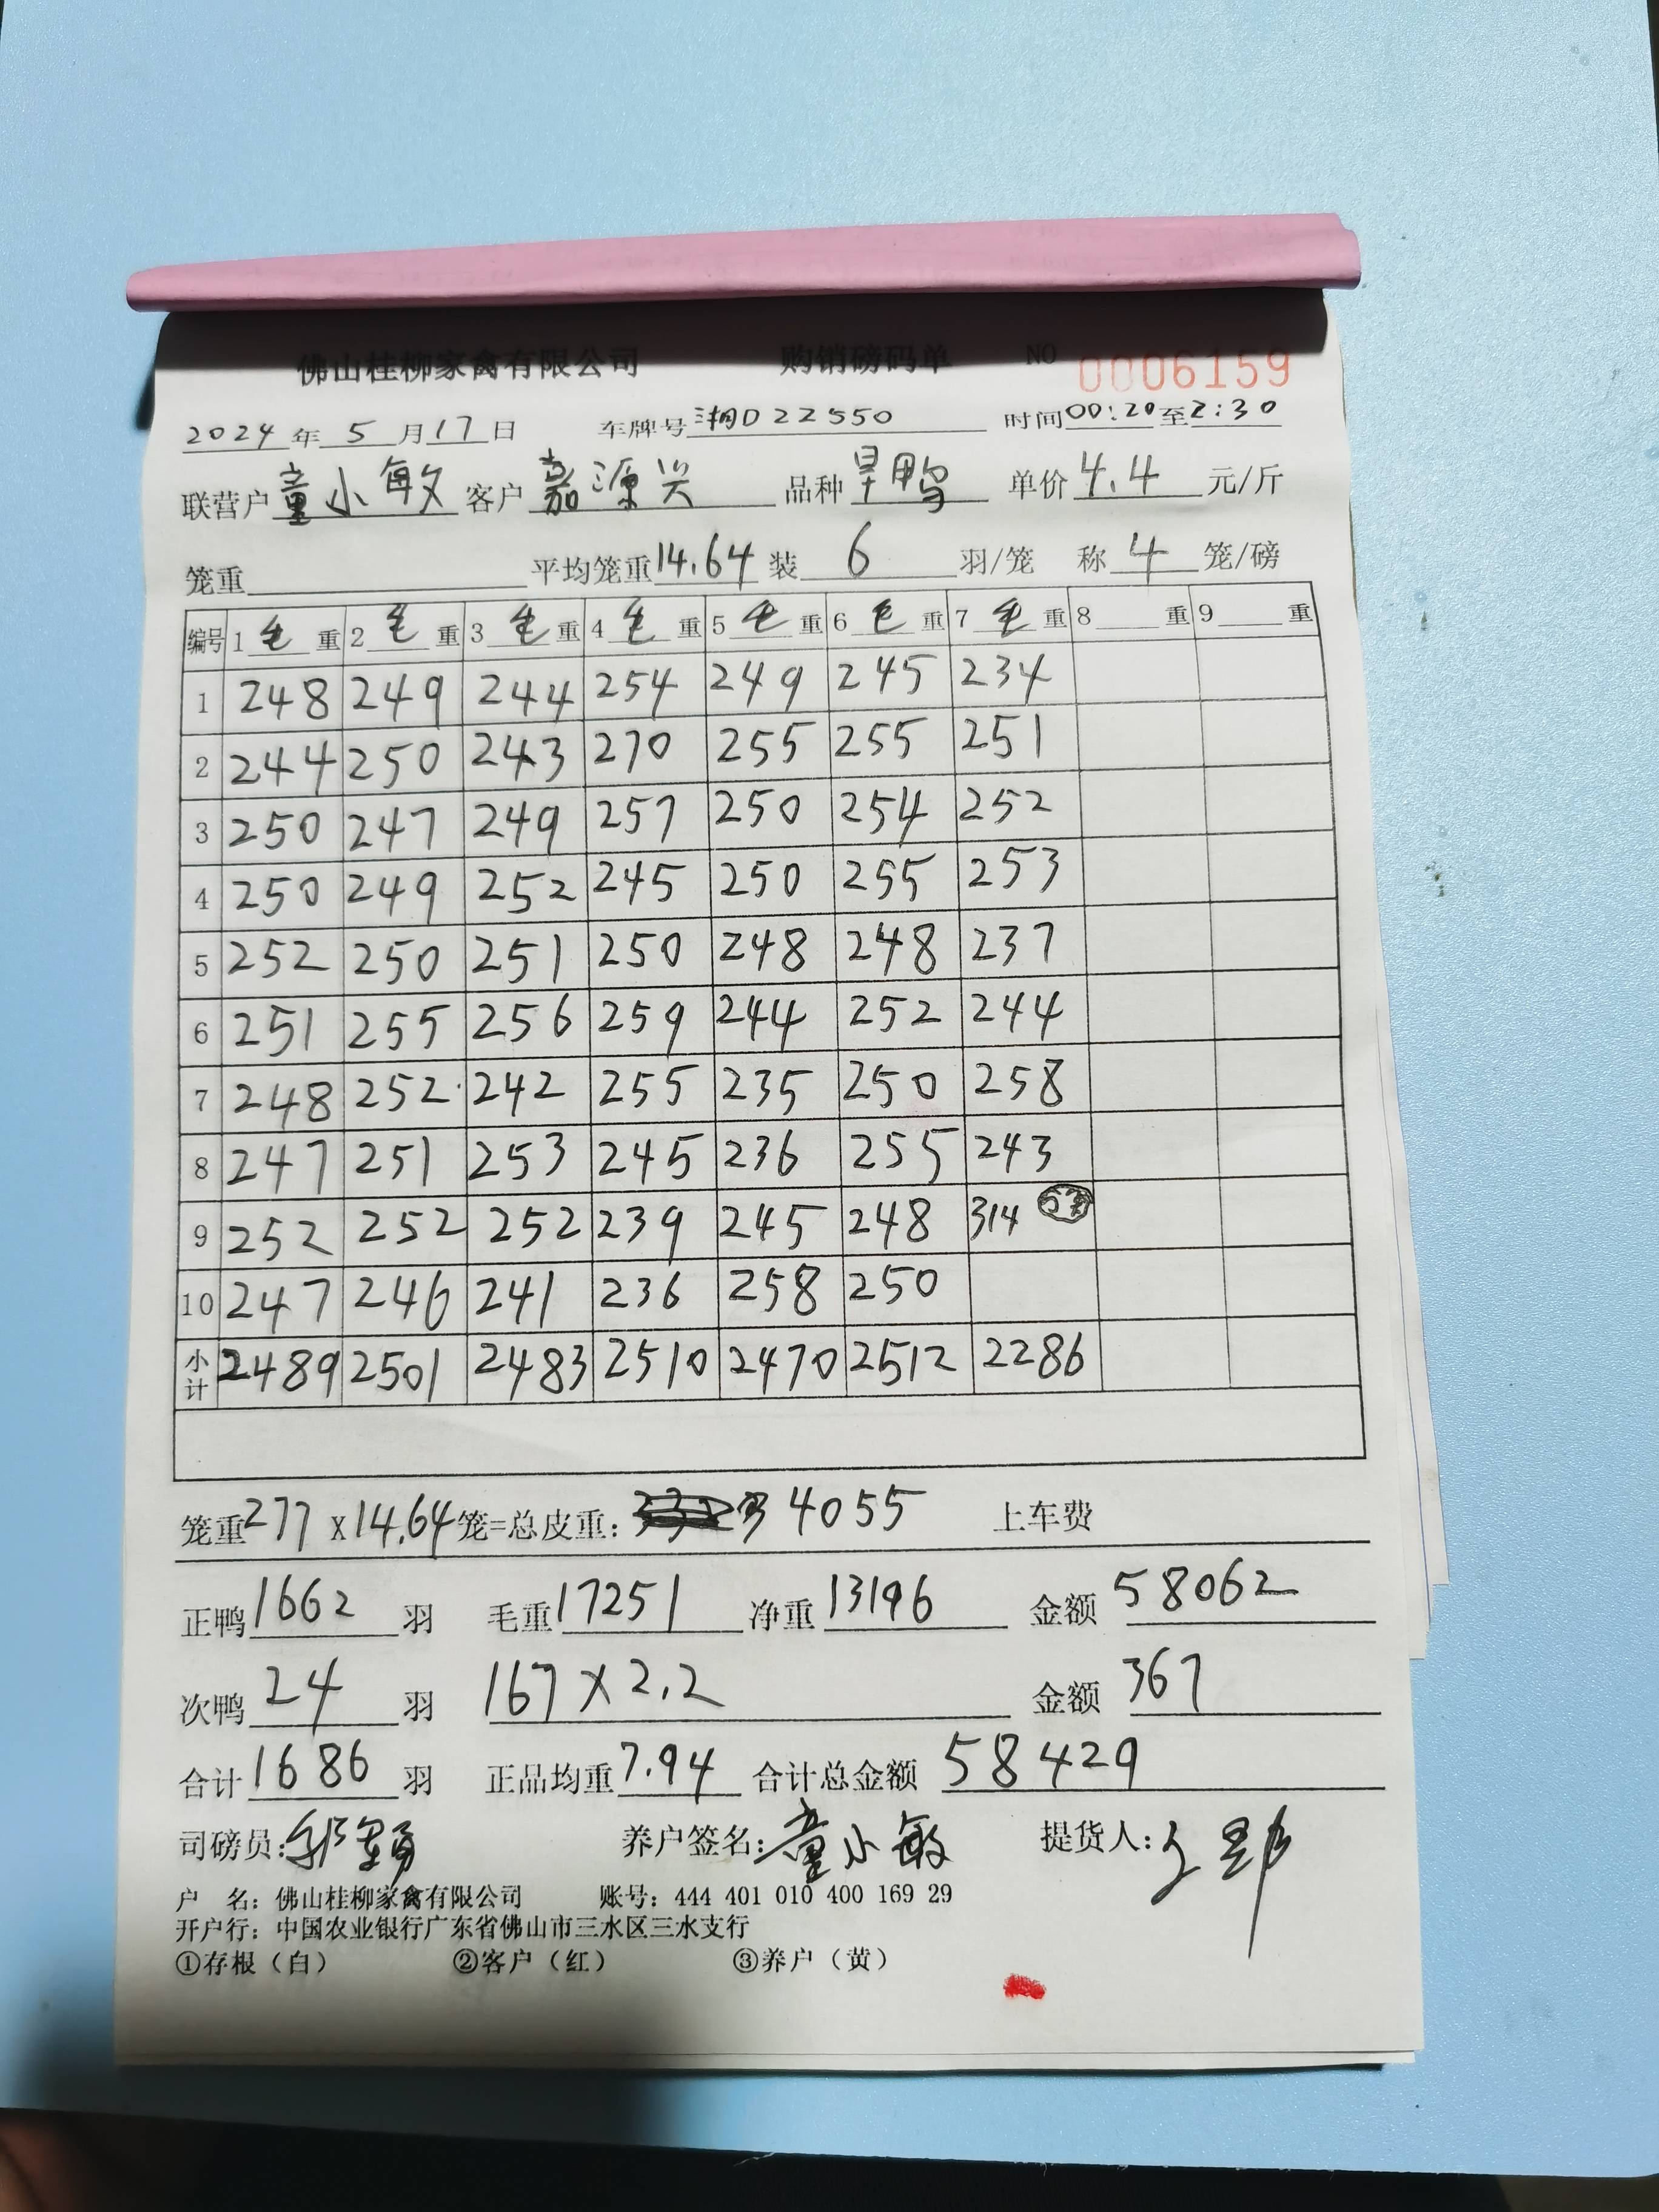 佛山桂柳家禽有限公司 购销磅码单 NO 0006159
2024年5月17日 车牌号湘D22550 时间00:20至2:30
联营户童小敏 客户嘉源兴 品种旱鸭 单价4.4元/斤
笼重 平均笼重14.64 装6羽/笼 称4笼/磅
编号 1毛重 2毛重 3毛重 4毛重 5毛重 6毛重 7毛重 8重 9重
1 248 249 244 254 249 245 234
2 244 250 243 270 255 255 251
3 250 247 249 257 250 254 252
4 250 249 252 245 250 255 253
5 252 250 251 250 248 248 237
6 251 255 256 259 244 252 244
7 248 252 242 255 235 250 258
8 247 251 253 245 236 255 243
9 252 252 252 239 245 248 314
10 247 246 241 236 258 250
小计 2489 2501 2483 2510 2470 2512 2286
笼重277x14.64笼=总皮重: 4055 上车费
正鸭1662羽 毛重17251 净重13196 金额58062
次鸭24羽 167×2.2 金额367
合计1686羽 正品均重7.94 合计总金额58429
司磅员: 养户签名:童小敏 提货人:
户 名: 佛山桂柳家禽有限公司 账号: 444 401 010 400 169 29
开户行: 中国农业银行广东省佛山市三水区三水支行
①存根（白） ②客户（红） ③养户（黄）